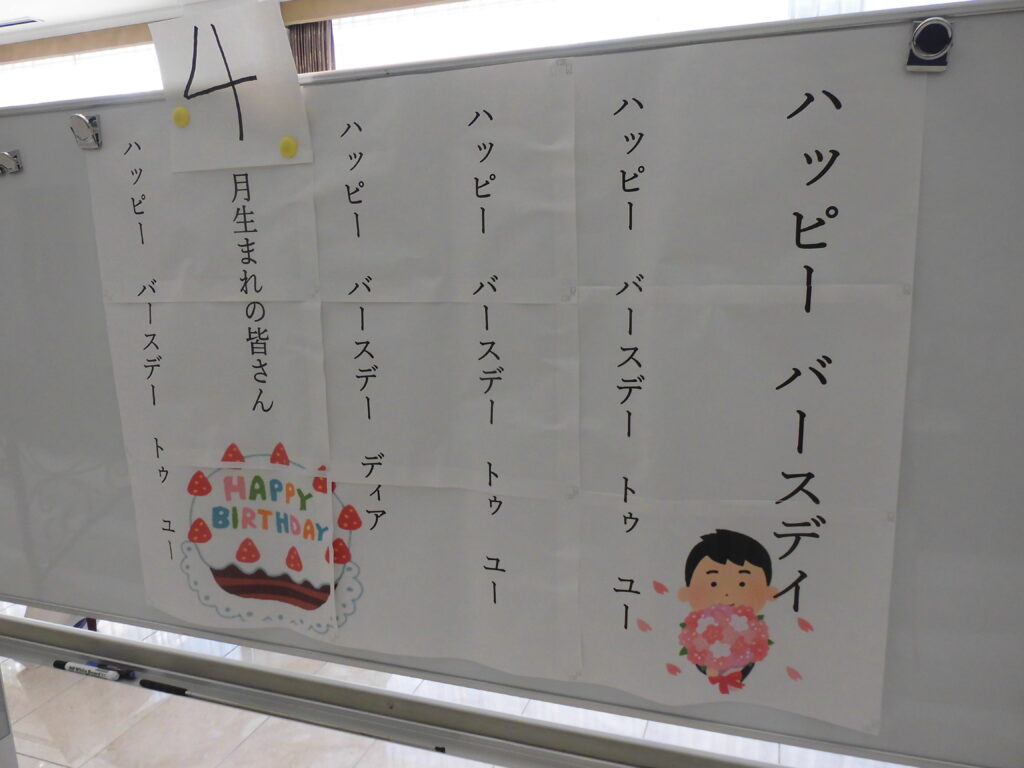 ハッピー バースデイ
ハッピー バースデー トゥ ユー
ハッピー バースデー トゥ ユー
ハッピー バースデー ディア
4月生まれの皆さん
ハッピー バースデー トゥ ユー
HAPPY
BIRTHDAY